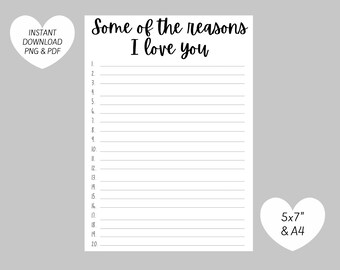 INSTANT
DOWNLOAD
PNG & PDF
Some of the reasons
I love you
1.
2.
3.
4.
5.
6.
7.
8.
9.
10.
11.
12.
13.
14.
15.
16.
17.
18.
19.
20.
5x7"
& A4